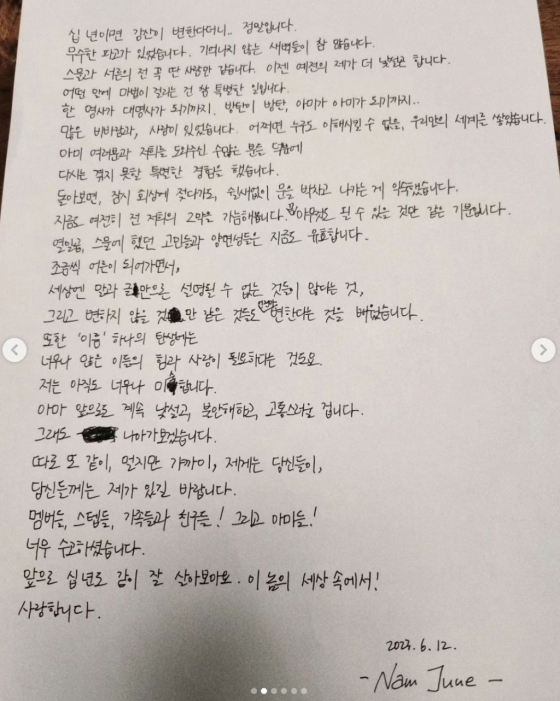 십 년이면 강산이 변한다더니.. 정말입니다.
무수한 파고가 있었습니다. 기억나지 않는 새벽들이 참 많습니다.
스물과 서른의 전 꼭 딴 사람만 같습니다. 이젠 예전의 제가 더 낯설곤 합니다.
어떤 안에 마법이 걸리는 건 참 특별한 일입니다.
한 명사가 대명사가 되기까지. 방탄이 방탄, 아미가 아미가 되기까지..
많은 비바람과, 사랑이 있었습니다. 어쩌면 누구도 이해시킬 수 없을, 우리만의 세계를 쌓았습니다.
아미 여러분과 저희를 도와주신 수많은 분들 덕분에
다시는 겪지 못할 특별한 경험을 했습니다.
돌아보면, 잠시 회상에 젖다가도, 쉴새없이 문을 박차고 나가는 게 익숙했습니다.
지금도 여전히 전 저희의 2막을 가늠해봅니다. 아무것도 될 수 있을 것만 같은 기분입니다.
열일곱, 스물에 했던 고민들과 양면성들은 지금도 유효합니다.
조금씩 어른이 되어가면서,
세상엔 말과 글만으로 설명될 수 없는 것들이 많다는 것,
그리고 변하지 않을 것만 같은 것들도 변한다는 것을 배웠습니다.
또한 '이름' 하나의 탄생에는
너무나 많은 이들의 힘과 사랑이 필요하다는 것도요.
저는 아직도 너무나 미숙합니다.
아마 앞으로도 계속 낯설고, 불안해하고, 고통스러울 겁니다.
그래도 나아가보겠습니다.
따로 또 같이, 멀지만 가까이, 제게는 당신들이,
당신들께는 제가 있길 바랍니다.
멤버들, 스텝들, 가족들과 친구들! 그리고 아미들!
너무 수고하셨습니다.
앞으로 십년도 같이 잘 살아보아요. 이 놈의 세상 속에서!
사랑합니다.
2023. 6. 12.
- Nam June -